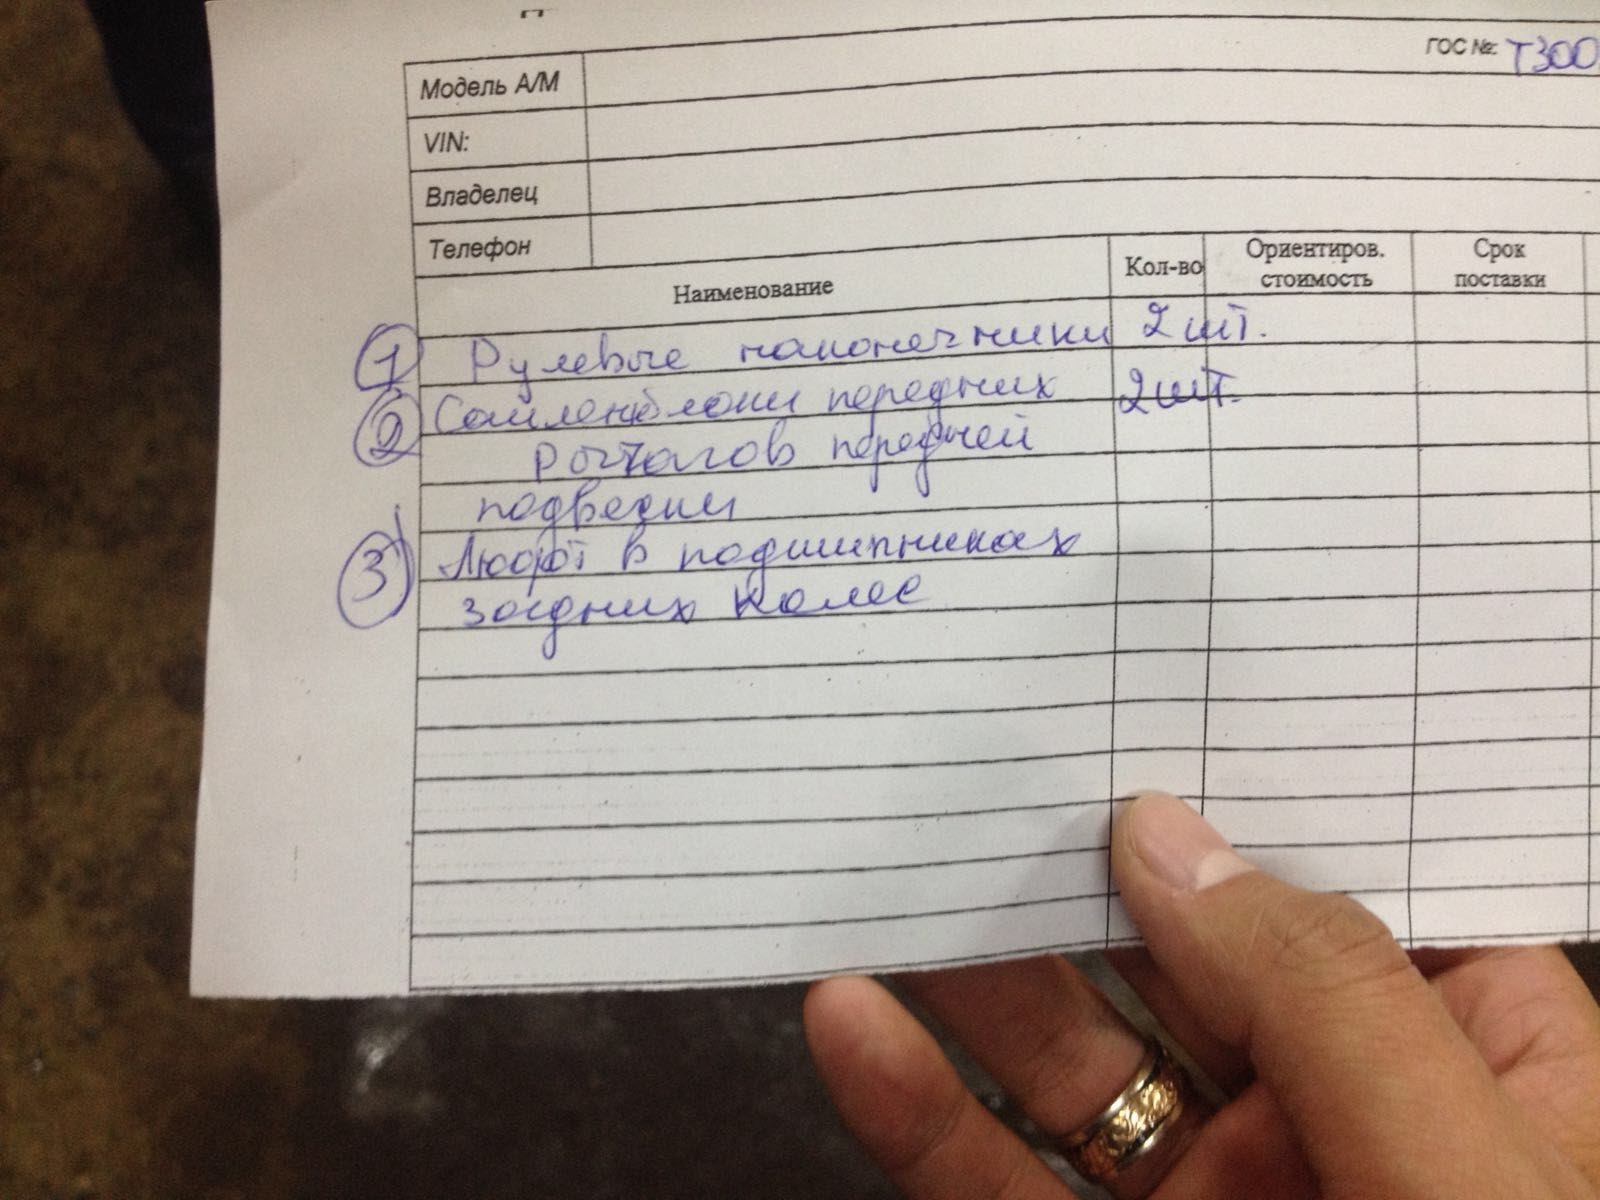 ГОС №: Т300
Модель А/М
VIN:
Владелец
Телефон
Наименование Кол-во Ориентиров. стоимость Срок поставки
1 Рулевые наконечники 2 шт.
2 Сайленблоки передних 2 шт.
Рычагов передней
подвески
3 Люфт в подшипниках
задних колес